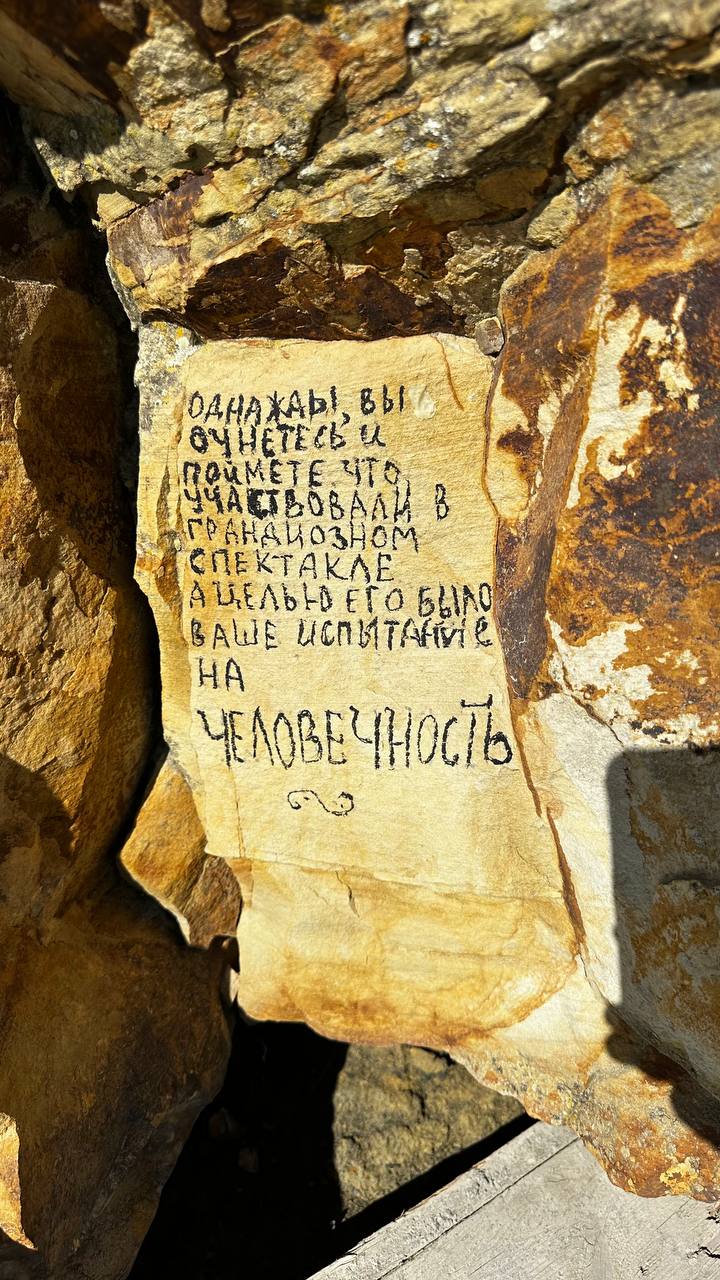 ОДНАЖДЫ, ВЫ
ОЧНЕТЕСЬ И
ПОЙМЕТЕ ЧТО
УЧАСТВОВАЛИ В
ГРАНДИОЗНОМ
СПЕКТАКЛЕ
А ЦЕЛЬЮ ЕГО БЫЛО
ВАШЕ ИСПЫТАНИЕ
НА
ЧЕЛОВЕЧНОСТЬ